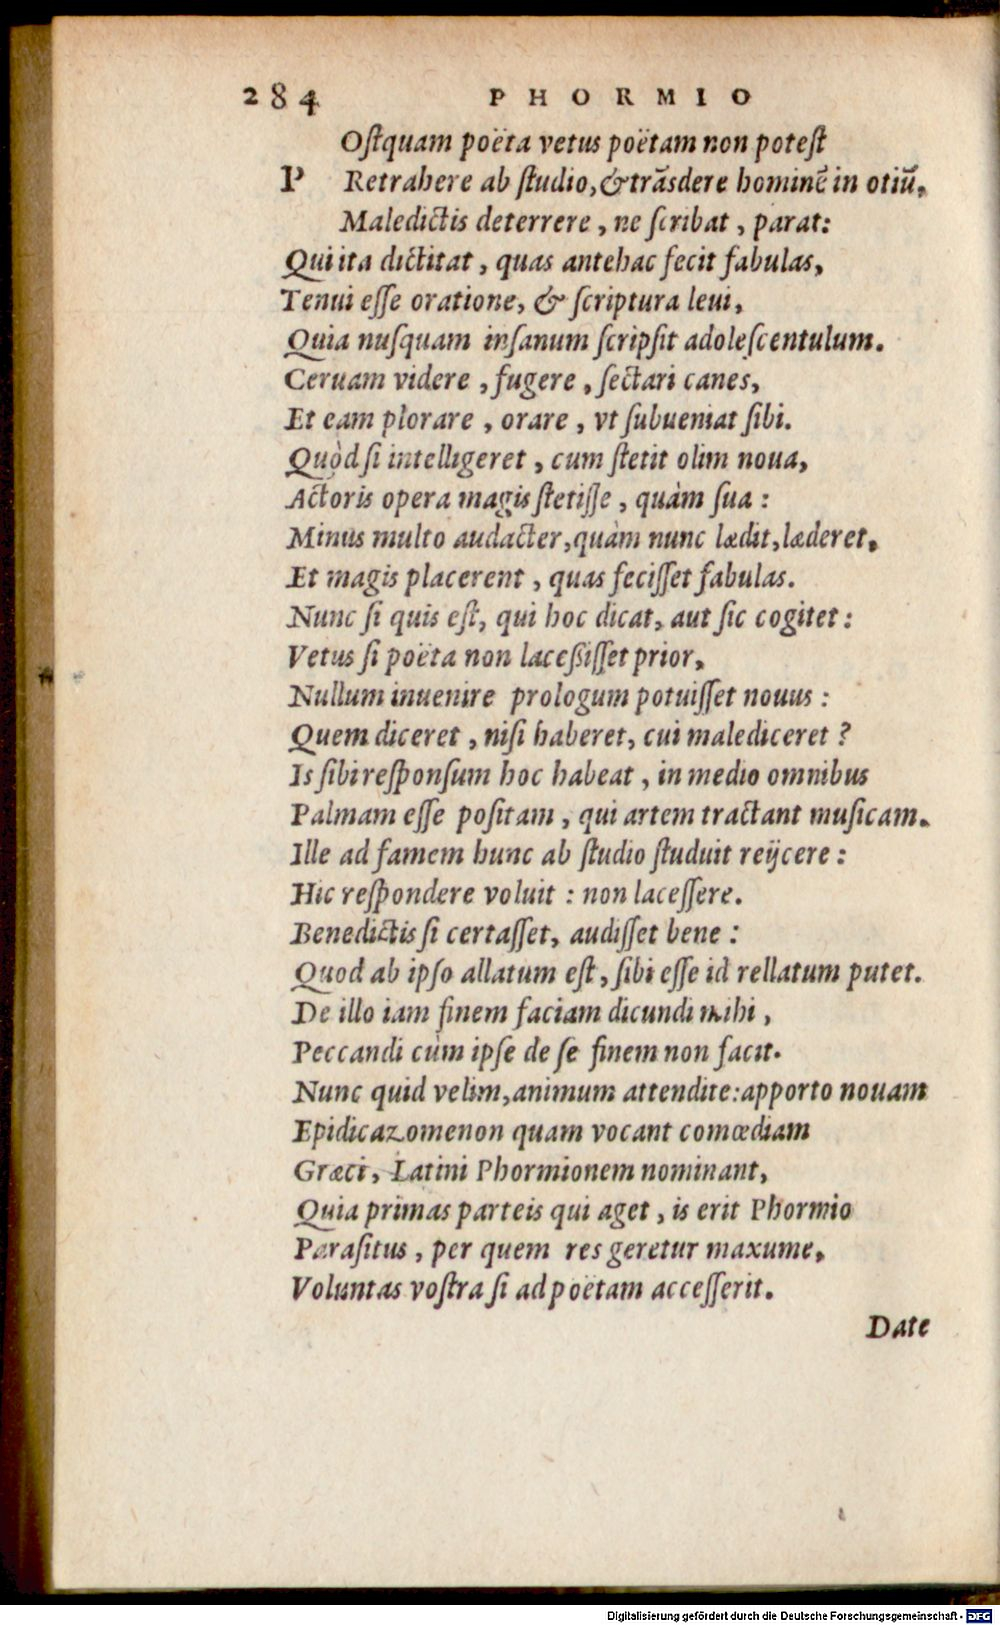 284 PHORMIO
Ostquam poëta vetus poëtam non potest
P Retrahere ab studio, & trãsdere hominẽ in otiũ,
Maledictis deterrere, ne scribat, parat:
Qui ita dictitat, quas antehac fecit fabulas,
Tenui esse oratione, & scriptura leui,
Quia nusquam insanum scripsit adolescentulum.
Ceruam videre, fugere, sectari canes,
Et eam plorare, orare, vt subueniat sibi.
Quòd si intelligeret, cum stetit olim noua,
Actoris opera magis stetisse, quàm sua:
Minus multo audacter, quàm nunc lædit, læderet,
Et magis placerent, quas fecisset fabulas.
Nunc si quis est, qui hoc dicat, aut sic cogitet:
Vetus si poëta non lacessisset prior,
Nullum inuenire prologum potuisset nouus:
Quem diceret, nisi haberet, cui malediceret?
Is sibi responsum hoc habeat, in medio omnibus
Palmam esse positam, qui artem tractant musicam.
Ille ad famem hunc ab studio studuit reijcere:
Hic respondere voluit: non lacessere.
Benedictis si certasset, audisset bene:
Quod ab ipso allatum est, sibi esse id rellatum putet.
De illo iam finem faciam dicundi mihi,
Peccandi cùm ipse de se finem non facit.
Nunc quid velim, animum attendite: apporto nouam
Epidicazomenon quam vocant comœdiam
Græci, Latini Phormionem nominant,
Quia primas parteis qui aget, is erit Phormio
Parasitus, per quem res geretur maxume,
Voluntas vostra si ad poëtam accesserit.
Date
Digitalisierung gefördert durch die Deutsche Forschungsgemeinschaft - DFG